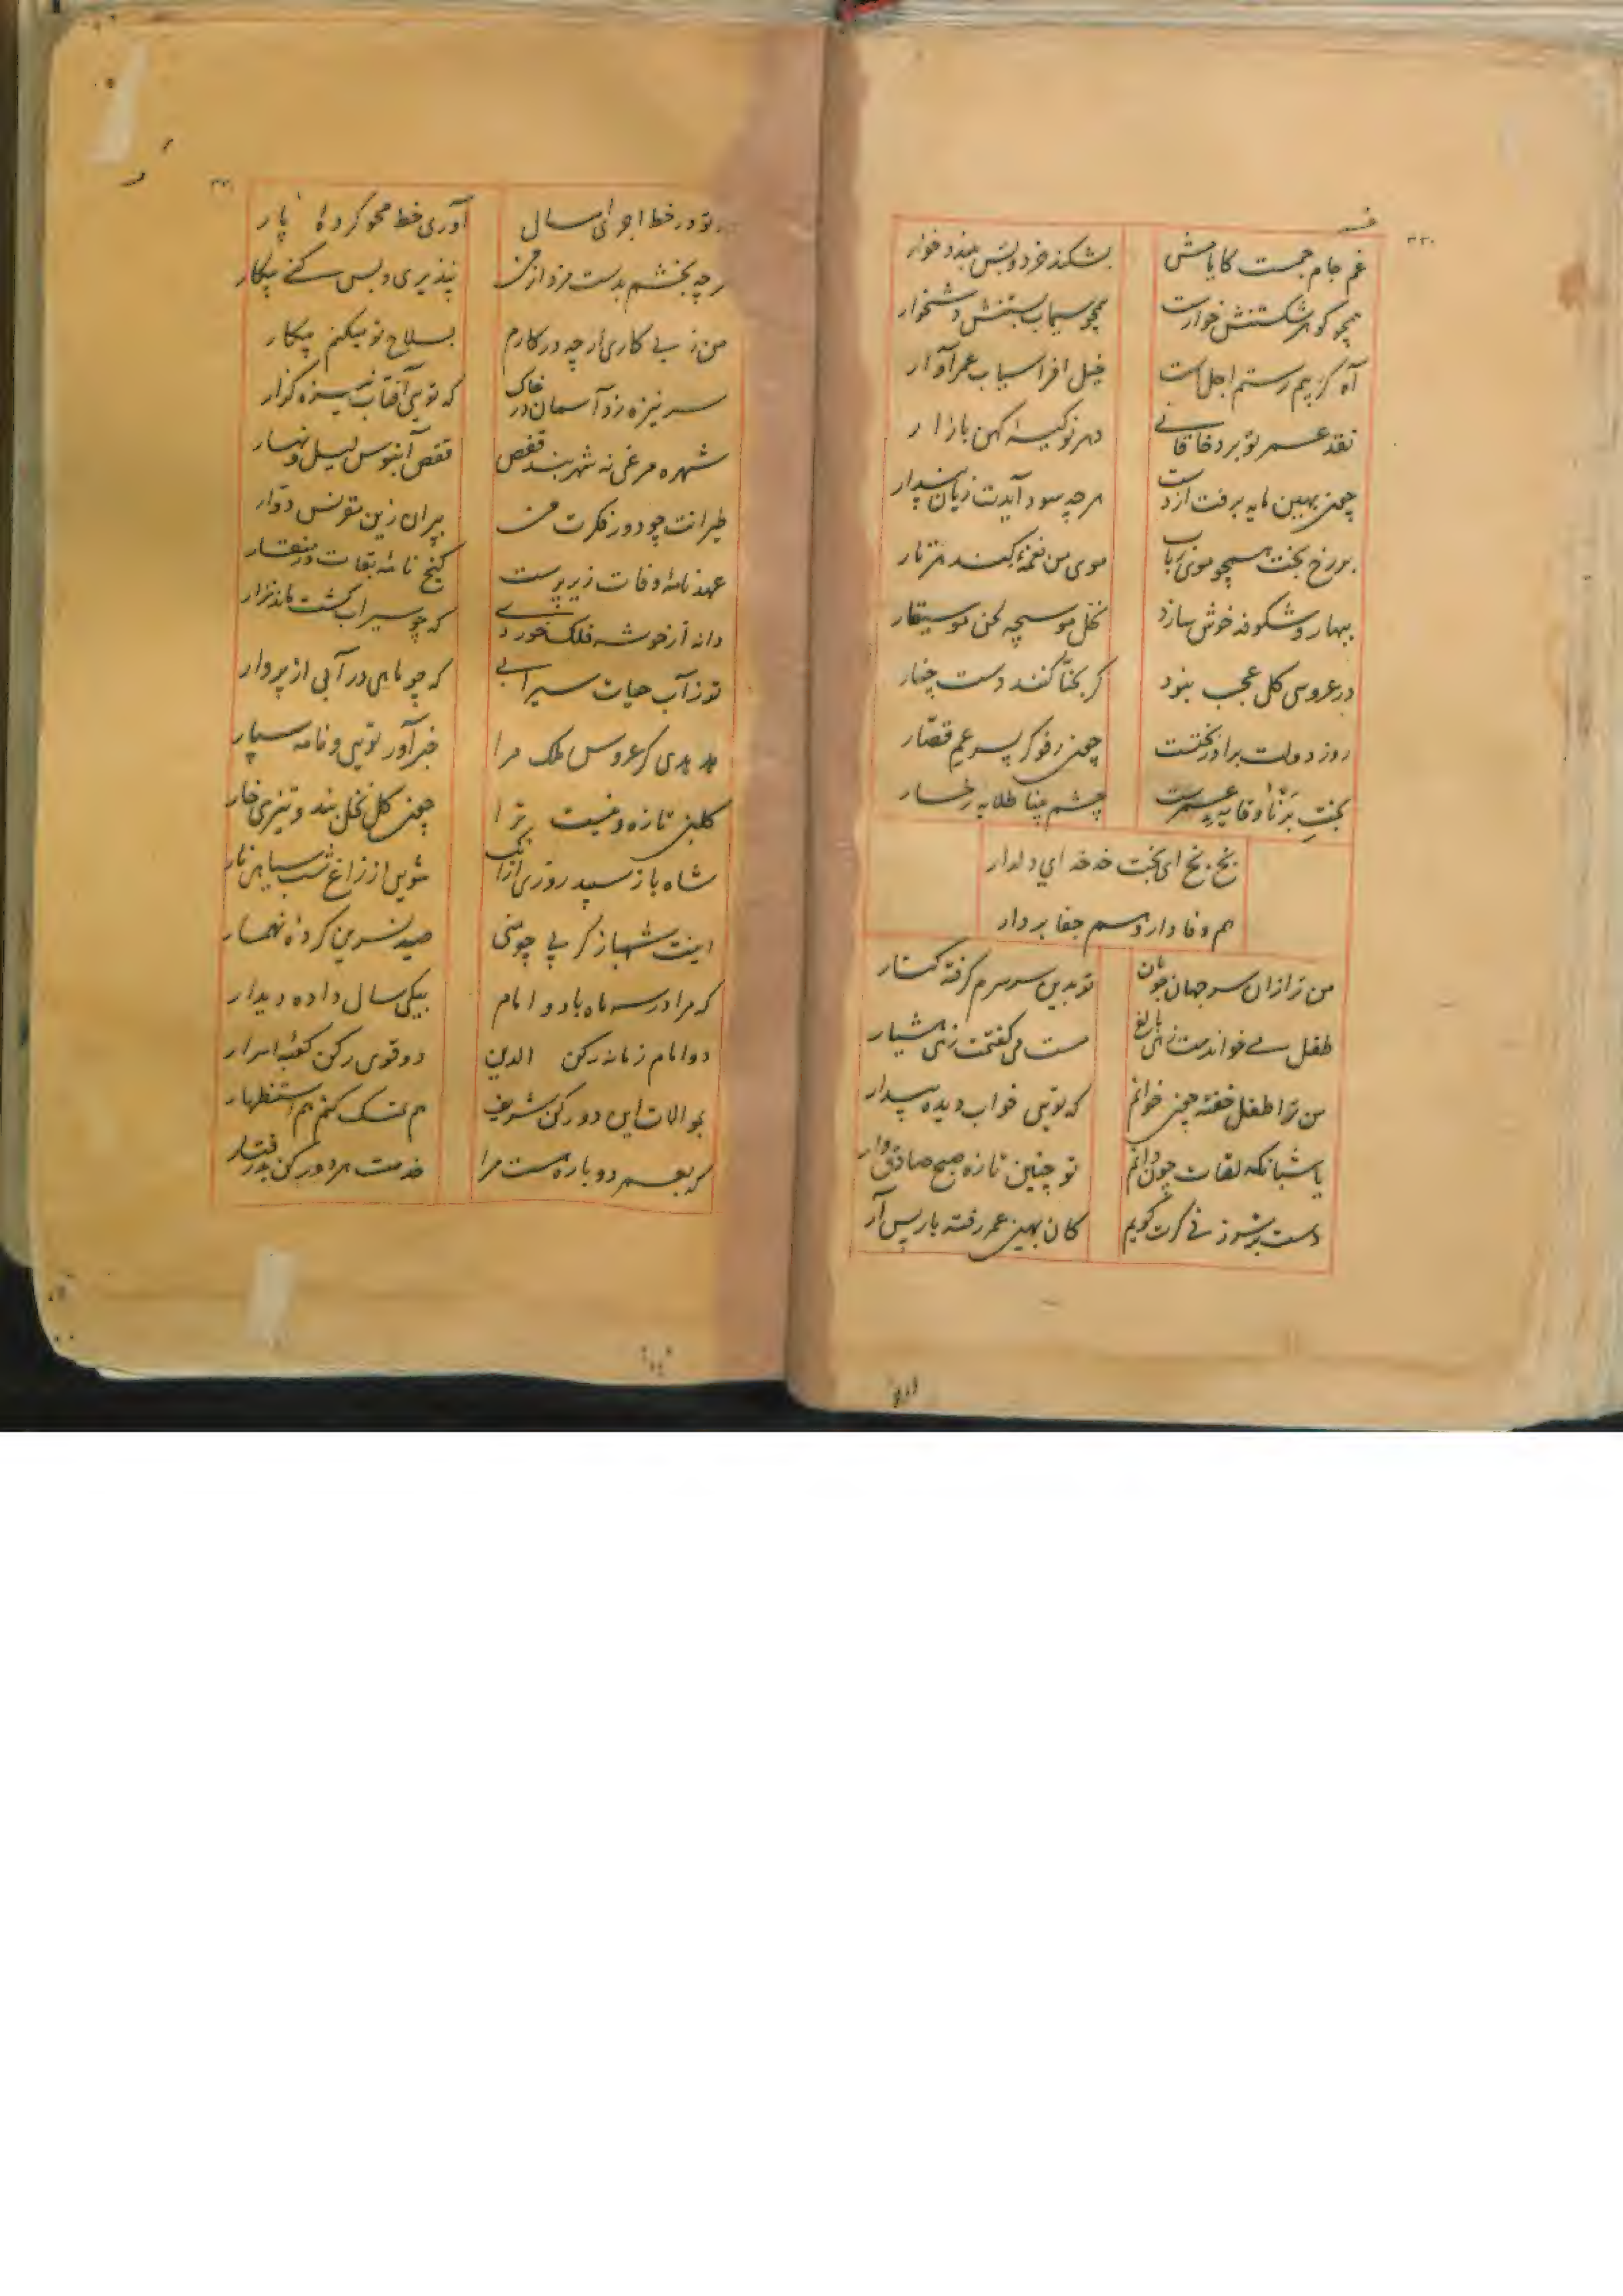 ۳۳۰
عمر جام جمست کایامش
بشکند خرد و پس ببندد خوار
همچو گوهر شکستنش خوارست
همچو سیماب بستنش دشخوار
آه کز بیم رستم اجل است
خیل افراسیاب عمر آوار
نقد عمر تو برد خاقانی
دهر نو کیسهٔ کهن بازار
چون بهین مایه برفت از دست
هر چه سود آیدت زیان پندار
بر رخ بخت همچو موی رباب
موی من نغمهٔ کند هر تار
بهار و شکوفه خوش سازد
نحل موسیچه لحن موسیقار
در عروسی گل عجب نبود
گر بحنا کنند دست چنار
روز دولت برادر بختست
چون رفوگر پسر عم قصار
بخت برنا وقایهٔ عمرست
چشم بینا طلایهٔ رخسار
بخ بخ ای بخت خه خه ای دلدار
هم وفادار و هم جفا بردار
من ترا زان سر جهان جویان
تو بدین سر سرم گرفته کنار
طفل می خواندمت زهی بالغ
مست می گفتمت زهی هشیار
من ترا طفل خفته چون خوانم
که تویی خواب دیدهٔ بیدار
یا شبانگه لقات چون دانم
تو چنین تازه صبح صادق وار
دست بر سر زنی گرت گویم
کان بهین عمر رفته باز پس آر
۳۳۱
تو در خط اجرای سال
آوری خط محو کردهٔ پار
رچه بخشم بدست مزد از من
نپذیری و بس کنی پیکار
من ز بی کاری ار چه در کارم
بسلاح تو میکنم پیکار
سر نیزه زد آسمان در خاک
که تویی آفتاب نیزه گزار
شهره مرغی نه شهربند قفص
قفص آبنوس لیل و نهار
طیرانت چو دور فکرت من
بر ازین مقرنس دوار
عهد نامهٔ وفات زیر پرست
گنج نامهٔ بقات در منقار
دانه از خوشه فلک خوردی
که چو سیراب گشت ماند نزار
تو ز آب حیات سیرابی
که چو ماهی در آبی از پروار
هدهدی کز عروس ملک مرا
خبر آور تویی و نامه سپار
گلبن تازه و نیست ترا
چون گل نخل بند و تیزی خار
شاه باز سپید روزی از آنک
شویی از زاغ شب سیاهی قار
اینت شهباز کز پی چو منی
صید نسرین کردهٔ نهمار
که مرا در سه ماه با دو امام
بیکی سال داده دیدار
دو امام زمانه رکن الدین
دو قوی رکن کعبهٔ اسرار
بموالات این دو رکن شریف
هم تمسک کنم هم استظهار
گر بعمر دوباره هست مرا
خدمت هر دو رکن پذرفتار